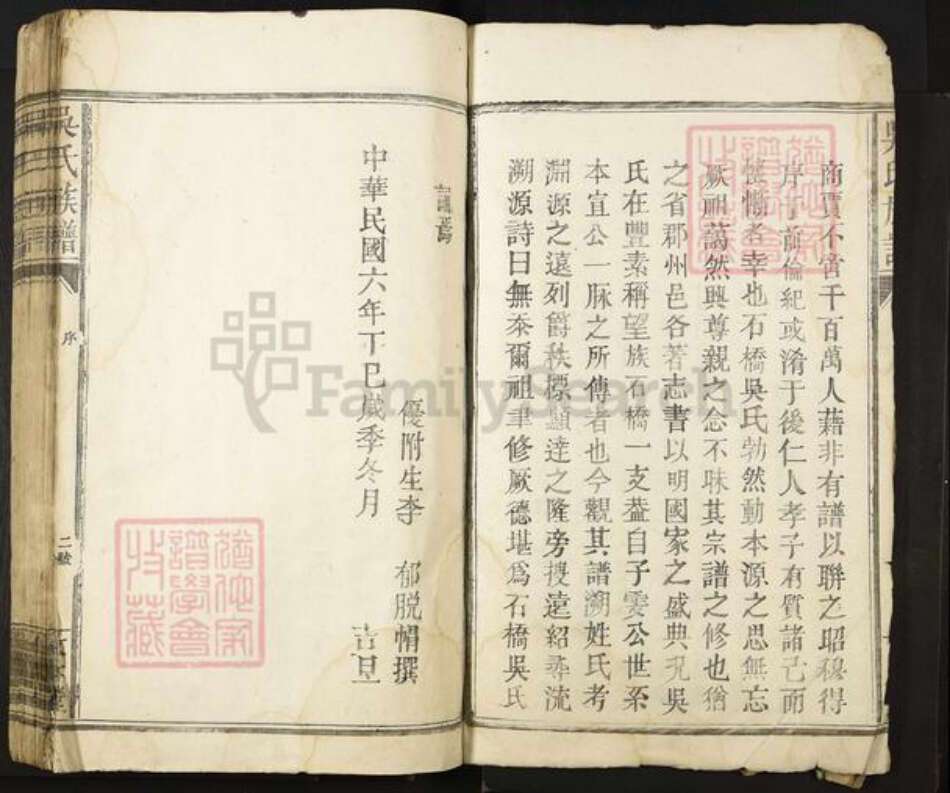 商賈不啻千百萬人藉非有譜以聯之昭穆得
序于前倫紀或淆于後仁人孝子有質諸己而
慚者幸也石橋吳氏勃然動本源之思無忘
厥祖藹然興尊親之念不昧其宗譜之修也猶
之省郡州邑各著志書以明國家之盛典況吳
氏在豐素稱望族石橋一支葢自子雯公世系
本宜公一脉之所傳者也今觀其譜溯姓氏考
淵源之遠列爵秩標顯達之隆旁搜遠紹尋流
溯源詩曰無忝爾祖聿修厥德堪爲石橋吳氏
誦焉
優附生李 郁脱帽撰
中華民國六年丁巳歲季冬月 吉旦
吳氏族譜
序
二號
FamilySearch
譜學會
收藏